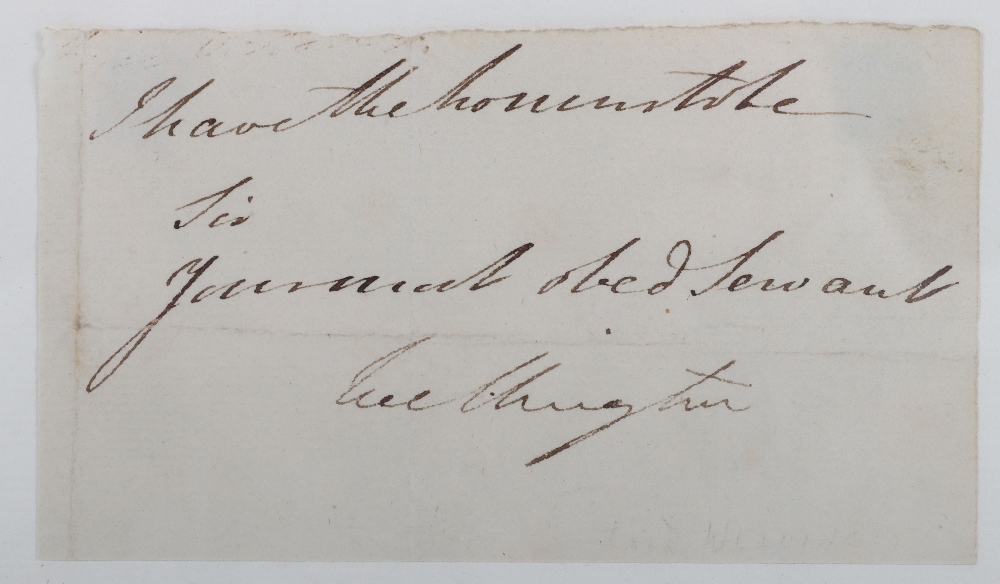 I have the honour to be
Sir
Your most obed Servant
Wellington